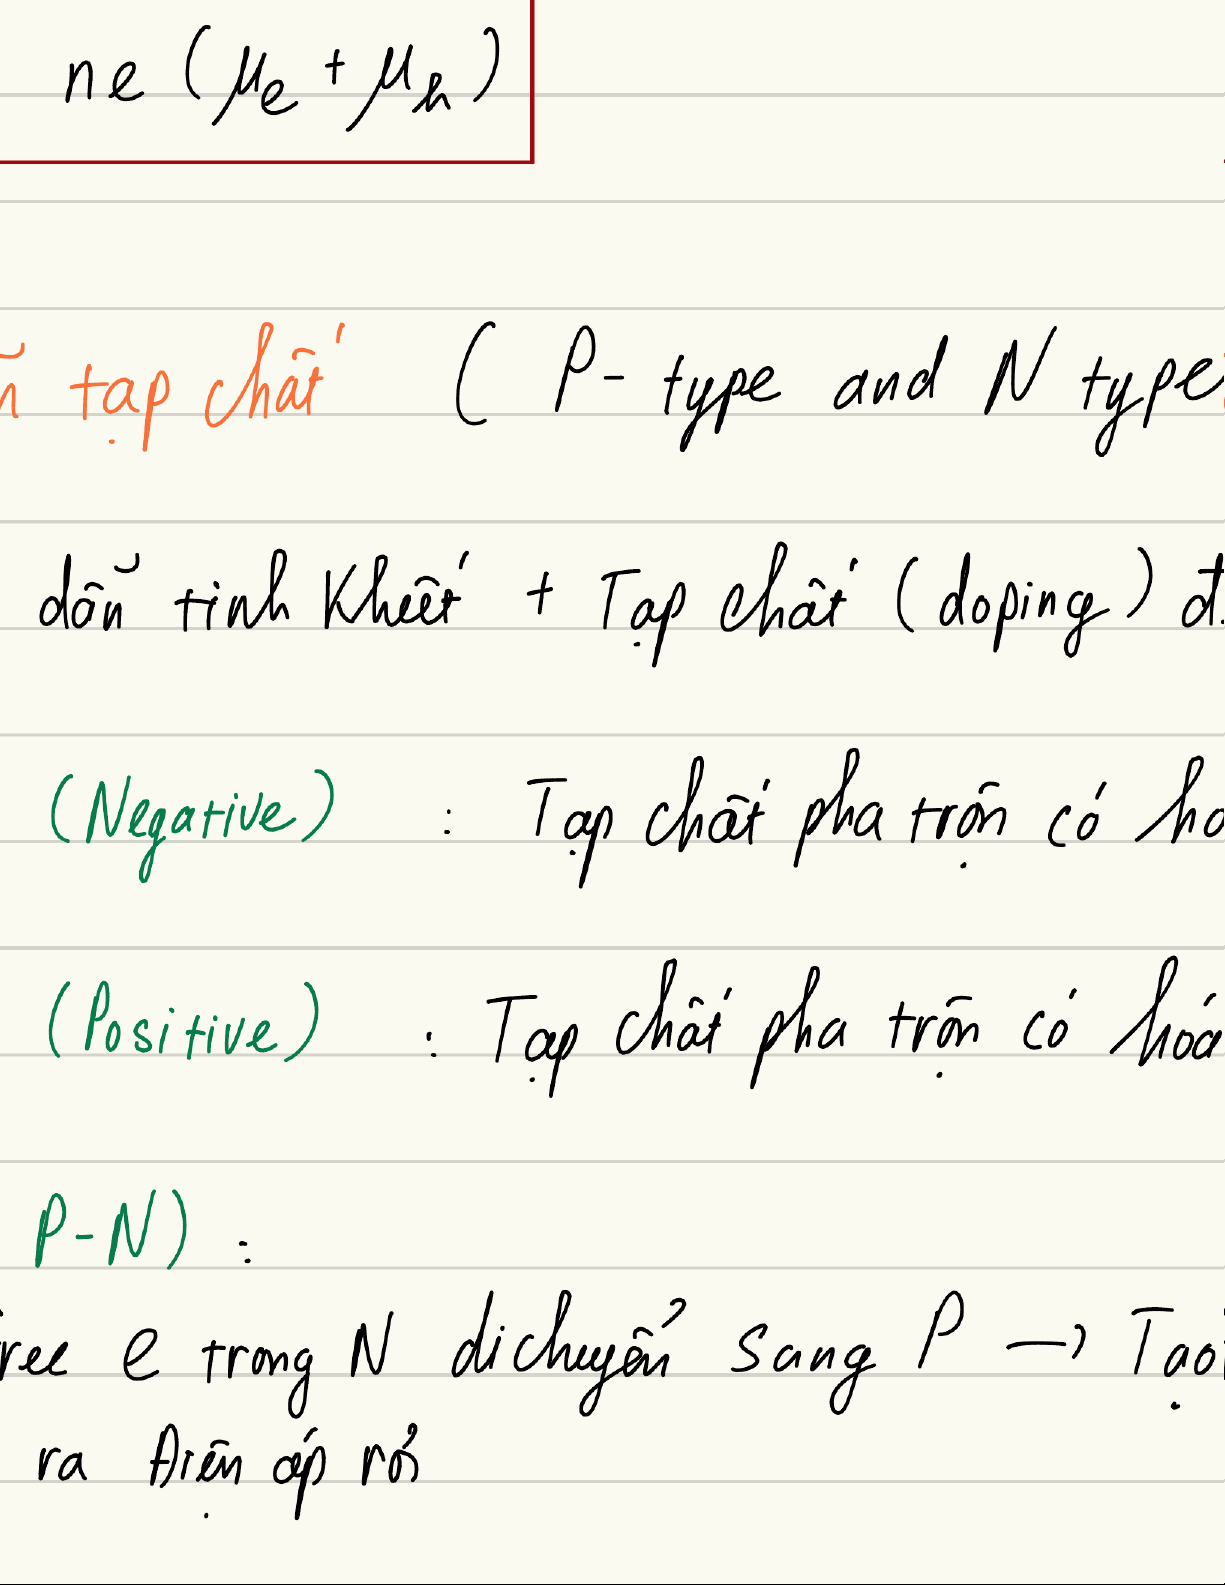 ne (μe + μh)
tạp chất ( P- type and N type
dẫn tinh Khiết + Tạp chất (doping)
(Negative) : Tạp chất pha trộn có
(Positive) : Tạp chất pha trộn có hóa
P-N) :
e trong N di chuyển sang P → Tạo
ra Điện áp rơi